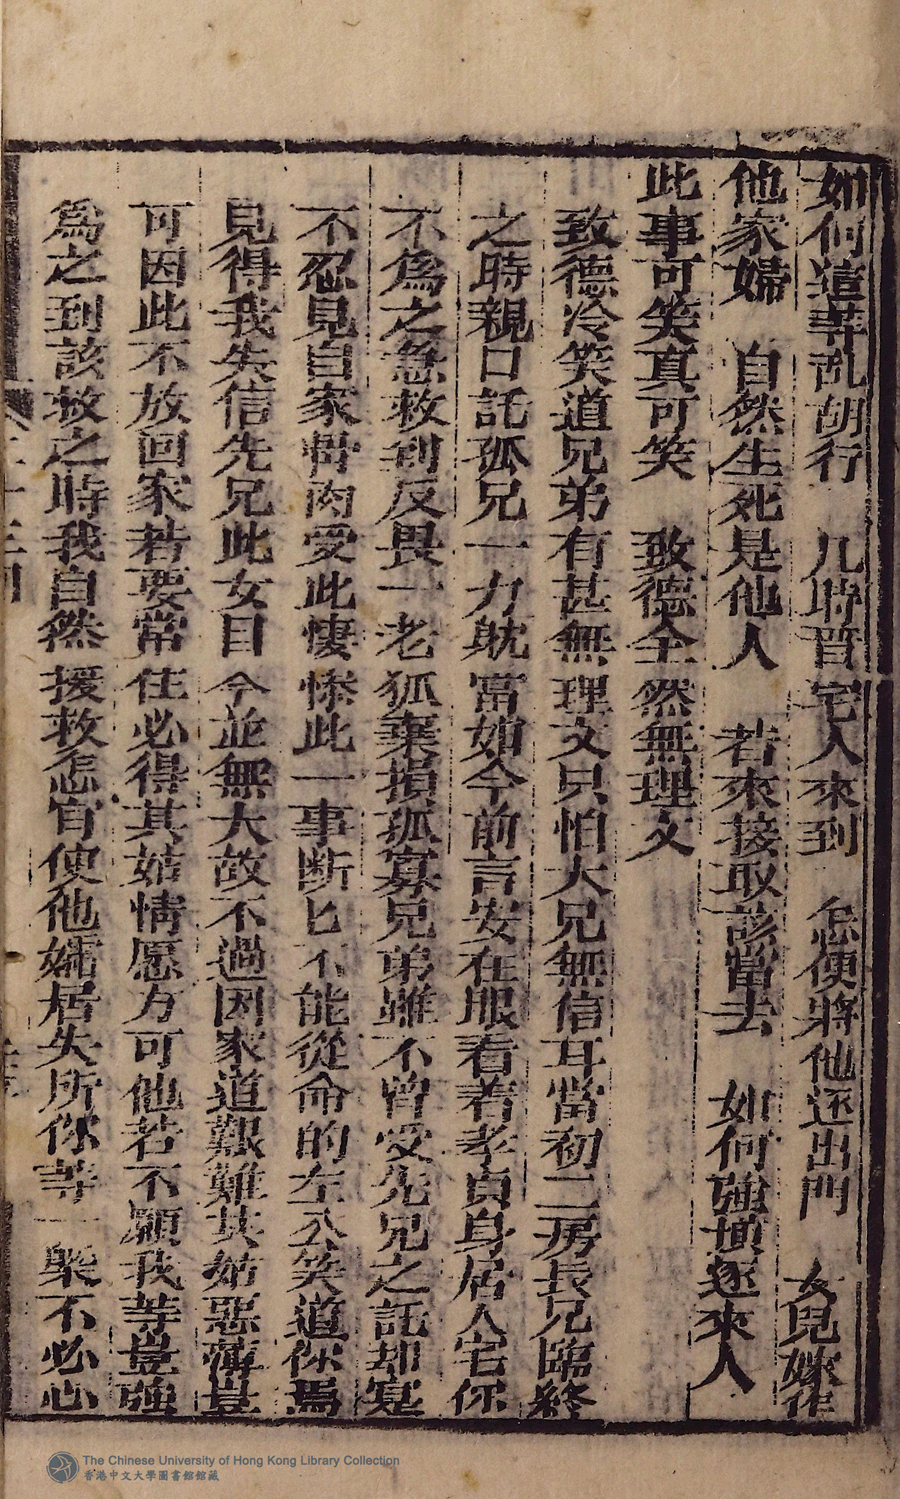 如何這等乱胡行　几時晋宅人來到　怎便將他逐出門　女兒嫁作
他家婦　自然生死是他人　若來接取該當去　如何強填逐來人
此事可笑真可笑　致德全然無理文
致德冷笑道兄弟有甚無理文只怕大兄無信耳當初二房長兄臨終
之時親口託孤兄一力耽當如今前言安在眼看着孝貞身居人宅你
不爲之急救到反畏一老狐棄損孤寡兄弟雖不曾受先兄之託却寔
不忍見自家骨肉受此悽慘此一事断匕不能從命的左公笑道你焉
見得我失信先兄此女目今並無大故不過因家道艱難其姑惡薄豈
可因此不放回家若要常住必得其姑情愿方可他若不願我等豈強
爲之到該救之時我自然援救怎肯使他孀居失所你等一槩不必心
The Chinese University of Hong Kong Library Collection
香港中文大學圖書館館藏